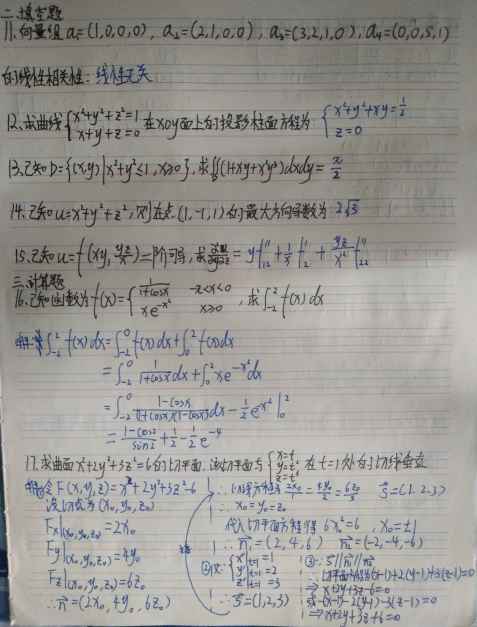 二.填空题
11.向量组 a₁=(1,0,0,0), a₂=(2,1,0,0), a₃=(3,2,1,0), a₄=(0,0,5,1)
的线性相关性: 线性无关
12.求曲线{x²+y²+z²=1 x+y+z=0 在xoy面上的投影柱面方程为: {x²+y²+xy=1/2 z=0
13.已知D={(x,y)|x²+y²≤1,x≥0},求∬(1+xy+x²y³)dxdy=π/2
14.已知u=x²+y²+z²,则在点(1,-1,1)的最大方向导数为: 2√3
15.已知u=f(xy, yz/x)二阶可导,求 =yf₁₂''+1/x f₂'+yz/x² f₂₂''
三.计算题
16.已知函数为f(x)={1/(1+cosx) -π<x<0 xe^(-x²) x≥0 ,求∫₋₂²f(x)dx
解:∫₋₂²f(x)dx=∫₋₂⁰f(x)dx+∫₀²f(x)dx
=∫₋₂⁰ 1/(1+cosx) dx+∫₀² xe^(-x²)dx
=∫₋₂⁰ (1-cosx)/((1+cosx)(1-cosx)) dx - 1/2 e^(-x²)|₀²
=(1-cos2)/sin2+1/2-1/2 e⁻⁴
17.求曲面x²+2y²+3z²=6的切平面,该切平面与{x=t y=t² z=t³ 在t=1处的切线垂直
解:令F(x,y,z)=x²+2y²+3z²-6
设切点为(x₀,y₀,z₀)
Fx|(x₀,y₀,z₀)=2x₀
Fy|(x₀,y₀,z₀)=4y₀
Fz|(x₀,y₀,z₀)=6z₀
∴n=(2x₀,4y₀,6z₀)
2x₀ 4y₀ 6z₀ s=(1,2,3)
∴x₀=y₀=z₀
代入切平面方程得 6x₀²=6, x₀=±1
∴n₁=(2,4,6) n₂=(-2,-4,-6)
②又∵{x'|t=1=1 y'|t=1=2 z'|t=1=3
∴s=(1,2,3)
③∵s∥n₁∥n₂
∴切平面方程为(x-1)+2(y-1)+3(z-1)=0
⇒x+2y+3z-6=0
或-(x+1)-2(y+1)-3(z+1)=0
⇒x+2y+3z+6=0